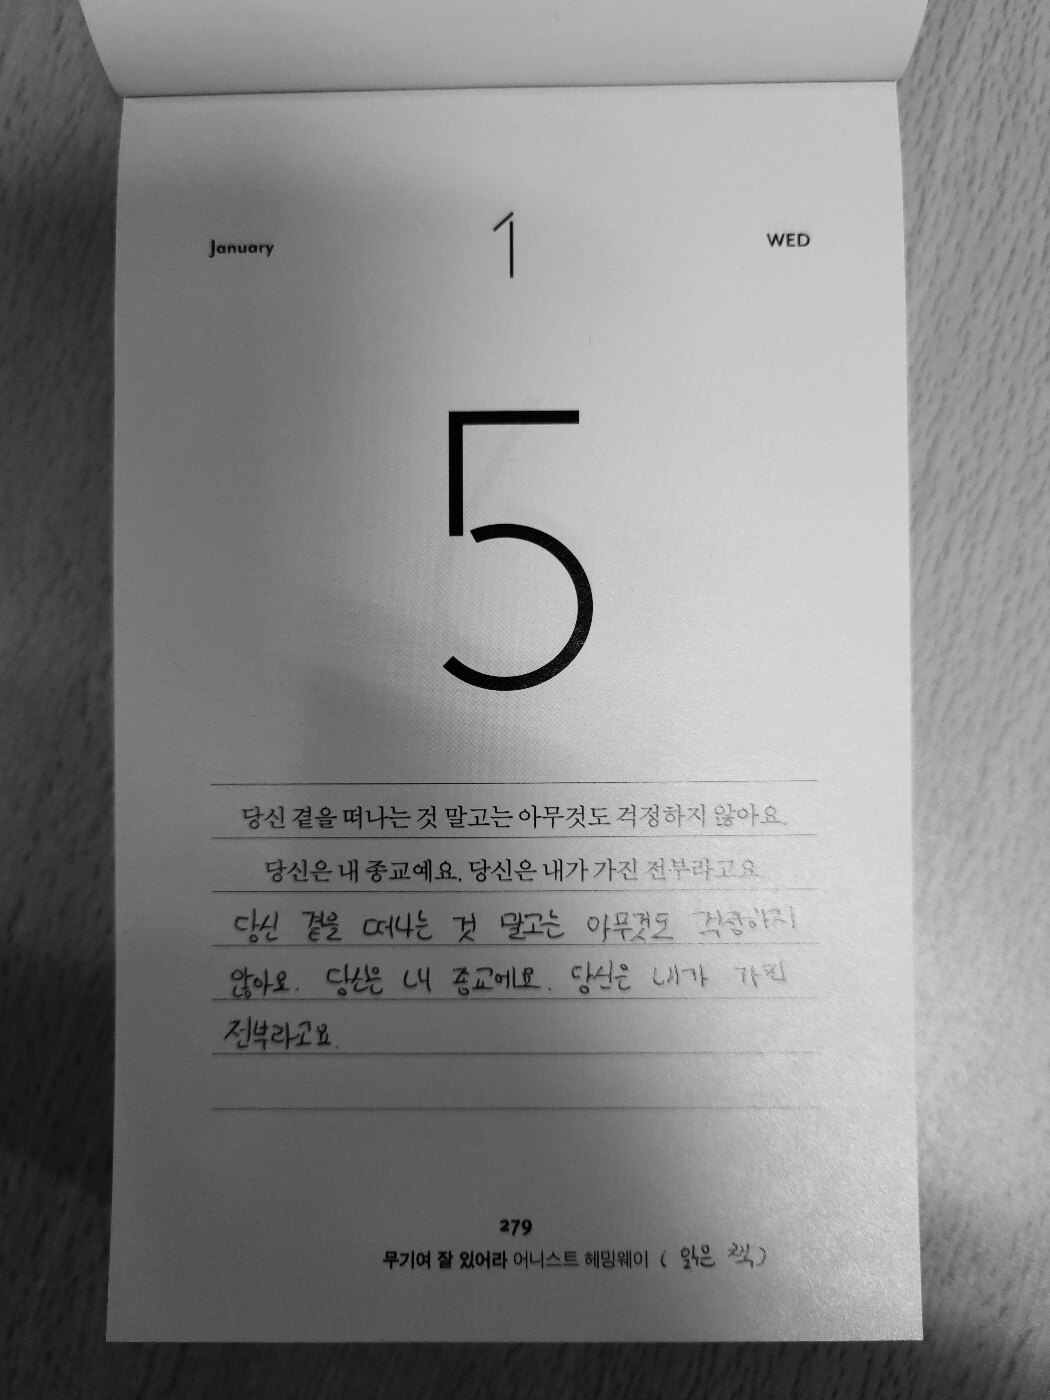 January 1 WED
5
당신 곁을 떠나는 것 말고는 아무것도 걱정하지 않아요.
당신은 내 종교예요. 당신은 내가 가진 전부라고요.
당신 곁을 떠나는 것 말고는 아무것도 걱정하지
않아요. 당신은 내 종교예요. 당신은 내가 가진
전부라고요.
279
무기여 잘 있어라 어니스트 헤밍웨이 ( 읽은 책 )